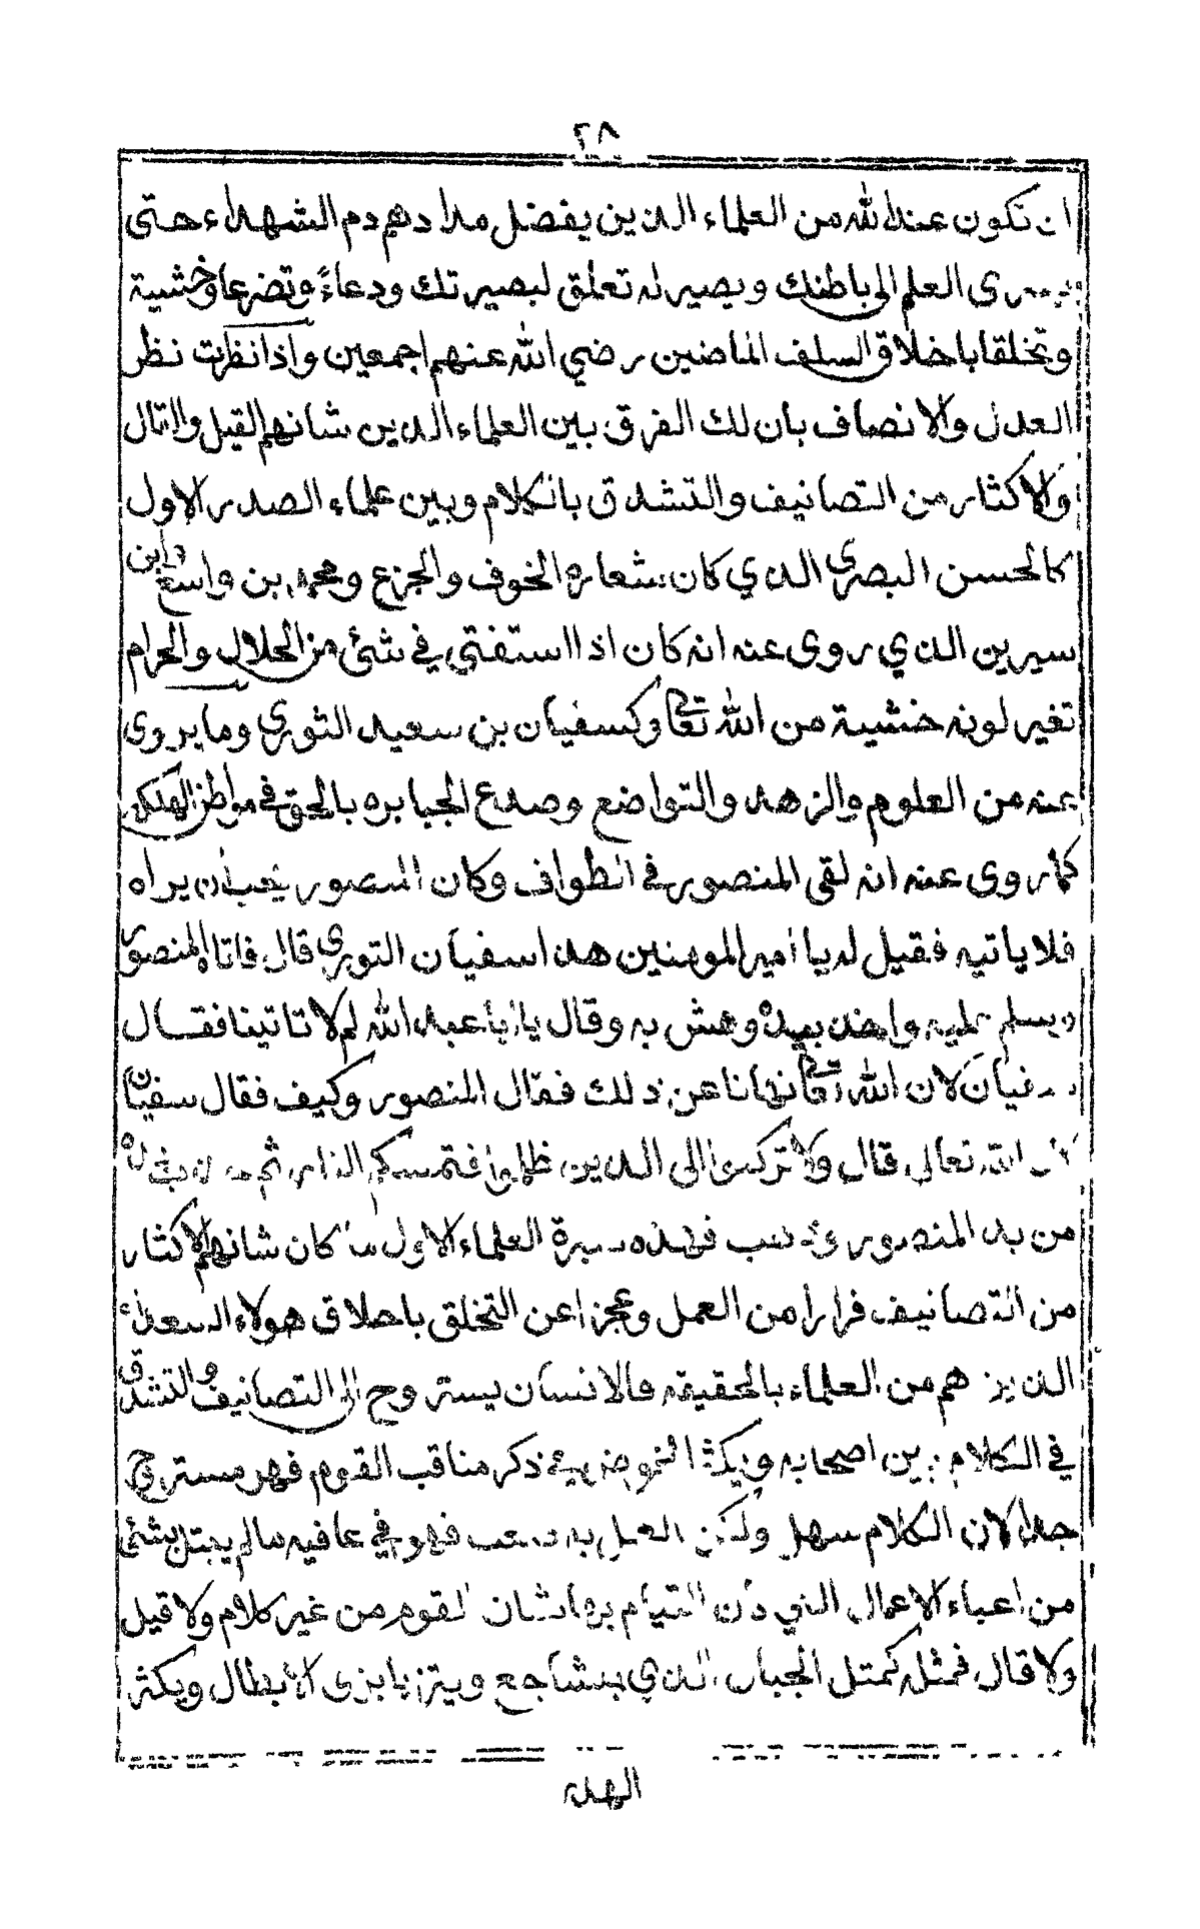 ٢٨
ان تكون عند الله من العلماء الذين يفضل مدادهم دم الشهداء حتى
يسري العلم الى باطنك ويصير له تعلق لبصيرتك ودعاءً وتضرعا وخشية
وتخلقا باخلاق السلف الماضين رضي الله عنهم اجمعين واذا نظرت نظر
العدل والانصاف بان لك الفرق بين العلماء الذين شانهم القيل والقال
والاكثار من التصانيف والتشدق بالكلام وبين علماء الصدر الاول
كالحسن البصري الذي كان شعاره الخوف والجزع ومحمد بن واسع وابن
سيرين الذي روى عنه انه كان اذا استفتى في شئ من الحلال والحرام
تغير لونه خشية من الله تعالى وكسفيان بن سعيد الثوري وما يروى
عنه من العلوم والزهد والتواضع وصدع الجبابره بالحق في مواطن الهلكه
كما روى عنه انه لقى المنصور في الطواف وكان المنصور يحب ان يراه
فلا ياتيه فقيل له يا امير المومنين هذا سفيان الثوري قال فاتاه المنصور
وسلم عليه واخذ بيده وهش به وقال يا ابا عبد الله لم لا تاتينا فقال
سفيان لان الله تعالى نهانا عن ذلك فقال المنصور وكيف فقال سفيان
لان الله تعالى قال ولا تركنوا الى الذين ظلموا فتمسكم النار ثم
من يد المنصور وذهب فهذه سيرة العلماء الاول ما كان شانهم الاكثار
من التصانيف فرارا من العمل وعجزا عن التخلق باخلاق هولاء السعداء
الذين هم من العلماء بالحقيقه فالانسان يستروح الى التصانيف والتشدق
في الكلام بين اصحابه ويكثر الخوض في ذكر مناقب القوم فهو مستروح
جدا لان الكلام سهل ولكن العمل به صعب فهو في عافيه مالم يبتل بشئ
من اعباء الاعمال التي كان القيام بها شان القوم من غير كلام ولا قيل
ولا قال فمثله كمثل الجبان الذي يتشاجع ويتزيا بزى الابطال ويكثر